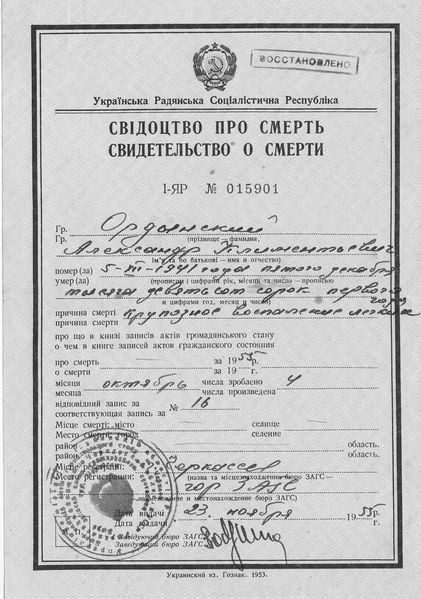 ВОССТАНОВЛЕНО
Українська Радянська Соціалістична Республіка
СВІДОЦТВО ПРО СМЕРТЬ
СВИДЕТЕЛЬСТВО О СМЕРТИ
І-ЯР № 015901
Гр. Ордынский
Гр. (прізвище — фамилия,
Александр Климентьевич
ім'я та по батькові — имя и отчество)
помер(ла) 5-XII-1941 года пятого декабря
умер(ла) (прописом і цифрами рік, місяць та число — прописью
тысяча девятьсот сорок первого года
и цифрами год, месяц и число)
причина смерті крупозное воспаление легких
причина смерти
про що в книзі записів актів громадянського стану
о чем в книге записей актов гражданского состояния
про смерть за 1955 р.
о смерти за 19 г.
місяця октябрь числа зроблено 4
месяца числа произведена
відповідний запис за № 16
соответствующая запись за
Місце смерті: місто селище
Место смерти: город селение
район область.
район область.
Місце реєстрації: Черкассы
Место регистрации: (назва та місцезнаходження бюро ЗАГС —
гор ЗАГС
наименование и местонахождение бюро ЗАГС)
Дата видачі 23 ноября 1955 р.
Дата выдачи г.
Завідуючий бюро ЗАГС
Заведующий бюро ЗАГС
Украинский из. Гознак. 1953.